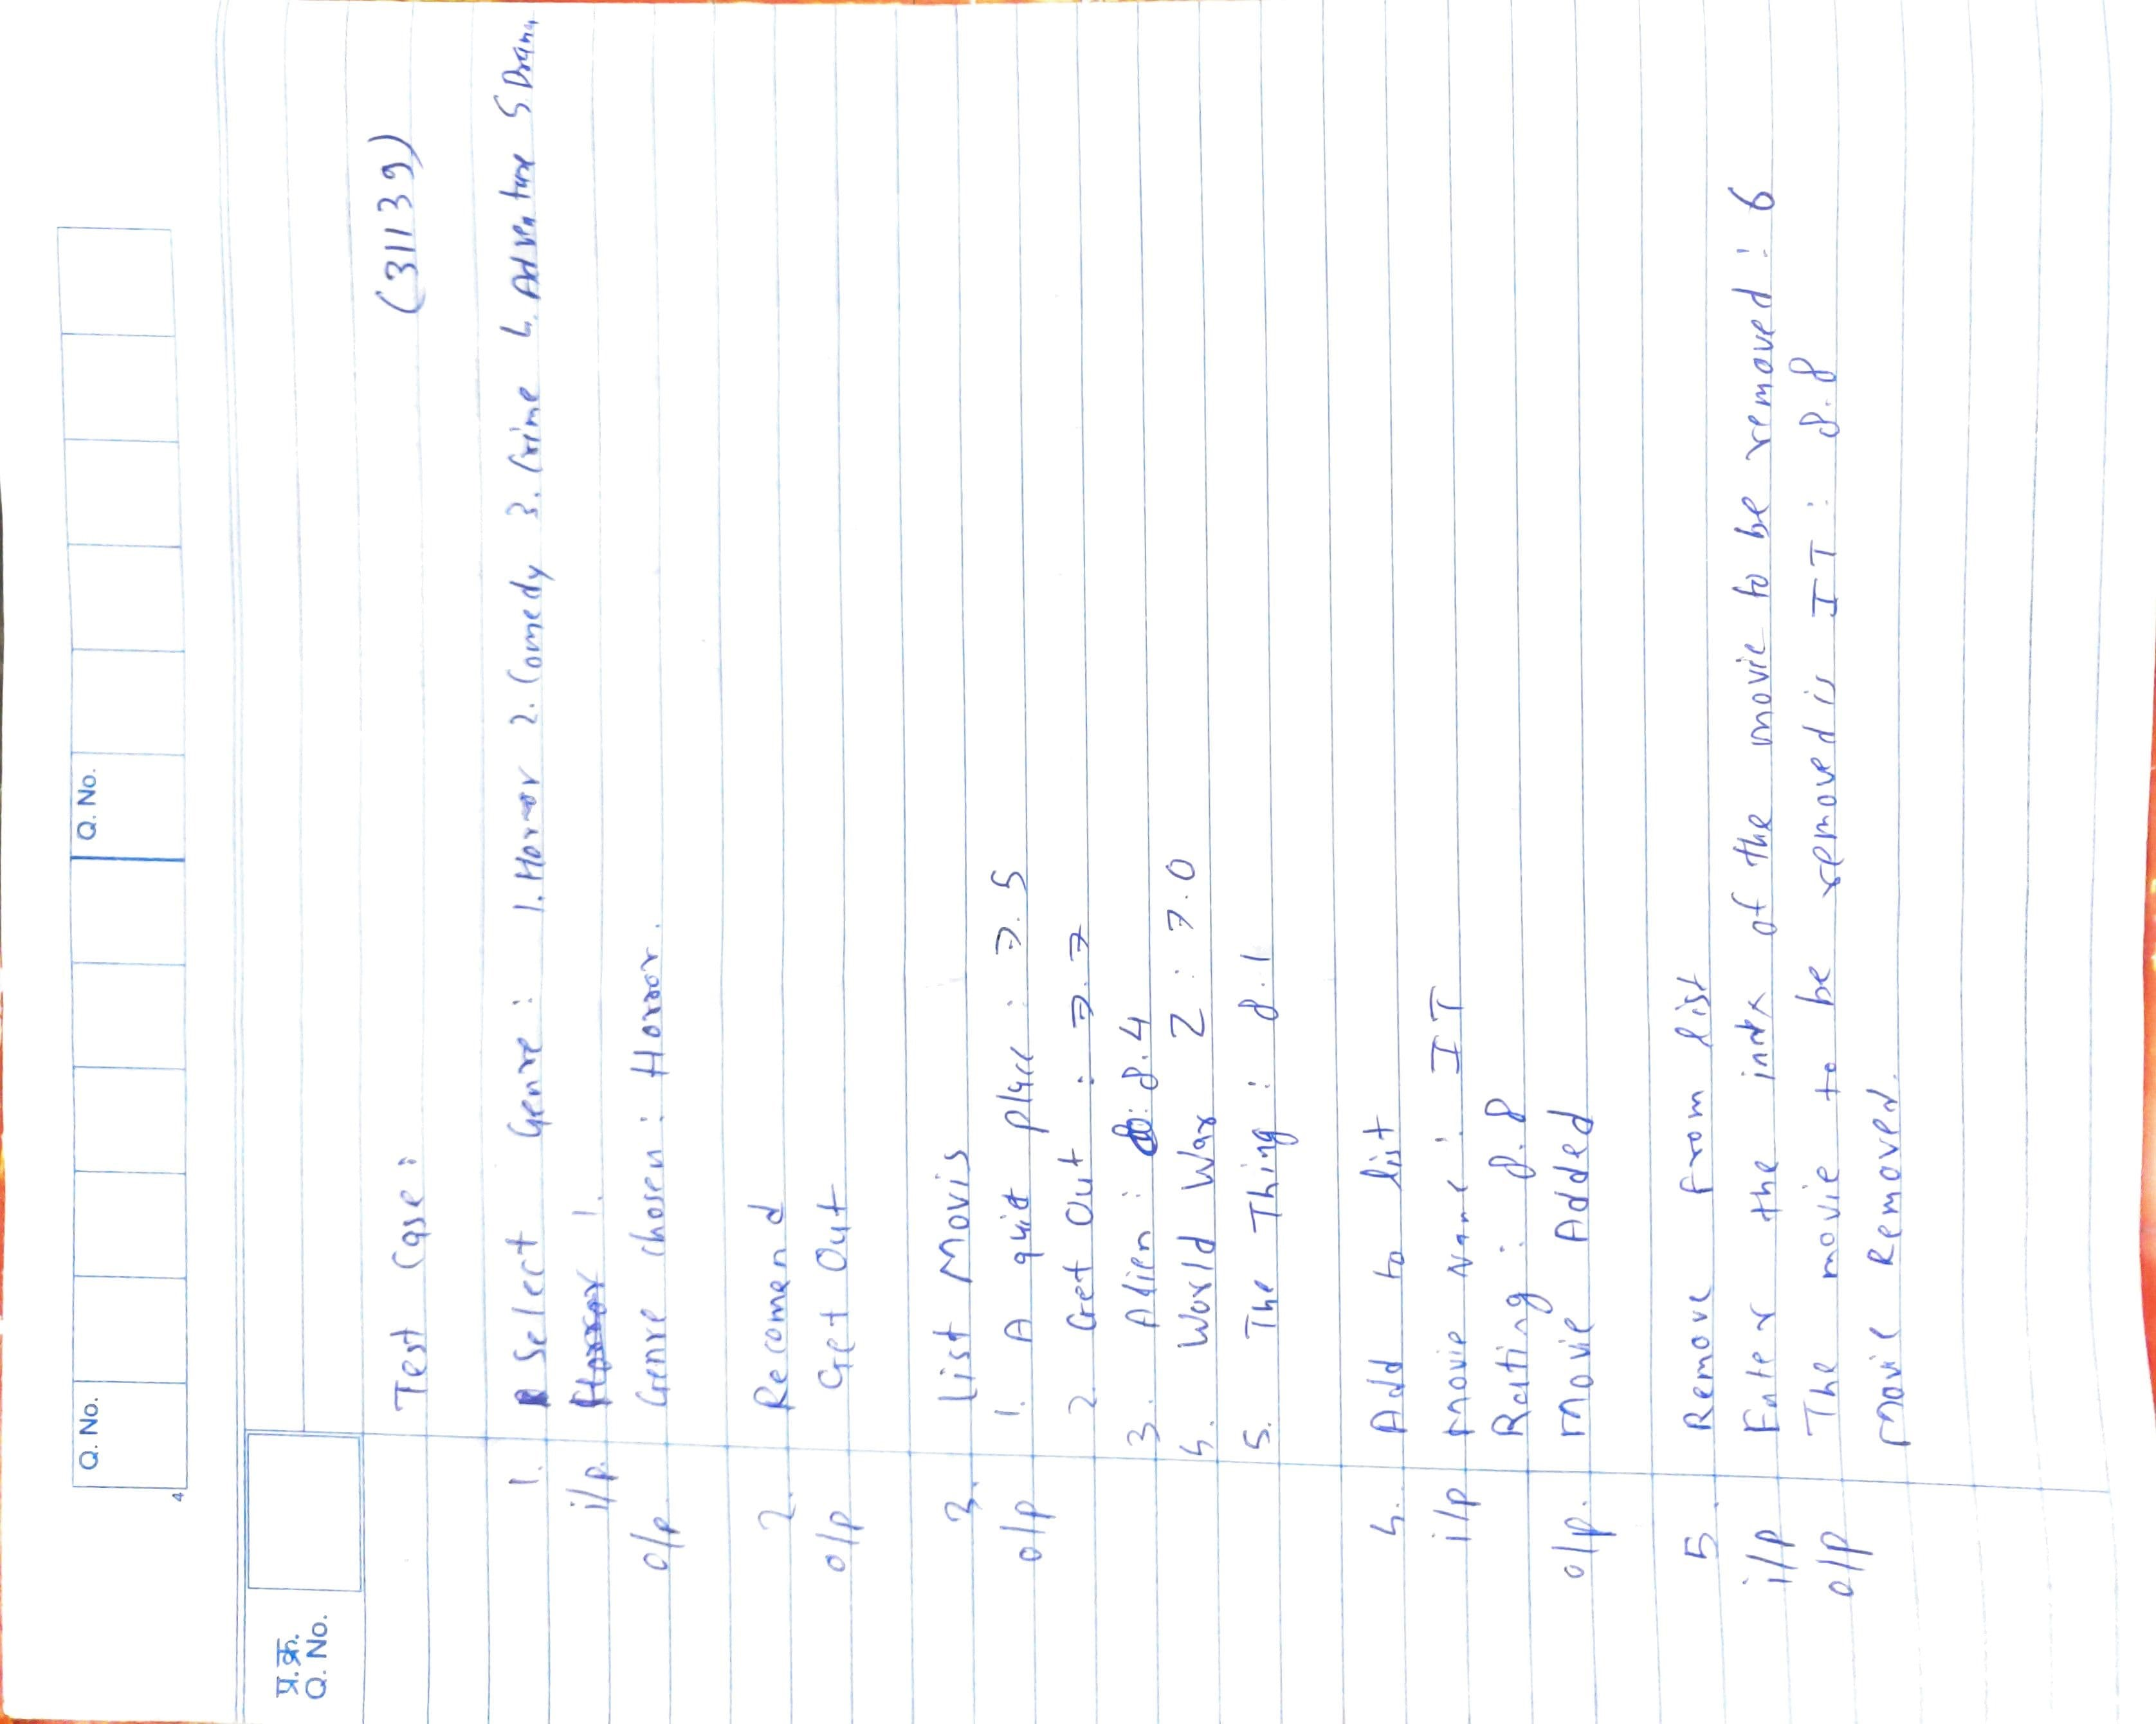 Q. No. Q. No.
4
प्र.क्र.
Q. No.
Test Case: (31139)
1. Select Genre: 1. Horror 2. Comedy 3. Crime 4. Adventure 5 Drama
i/p. Horror 1.
o/p Genre chosen: Horror.
2. Recomend
o/p Get Out
3. List Movis
o/p 1. A quiet place: 7.5
2 Get Out: 7.7
3. Alien: 8.4
4. World War Z: 7.0
5. The Thing: 8.1
4. Add to list
i/p Movie Name: IT
Rating: 8.8
o/p. Movie Added
5. Remove from list
i/p Enter the index of the movie to be removed: 6
o/p The movie to be removed is IT: 8.8
Movie Removed.